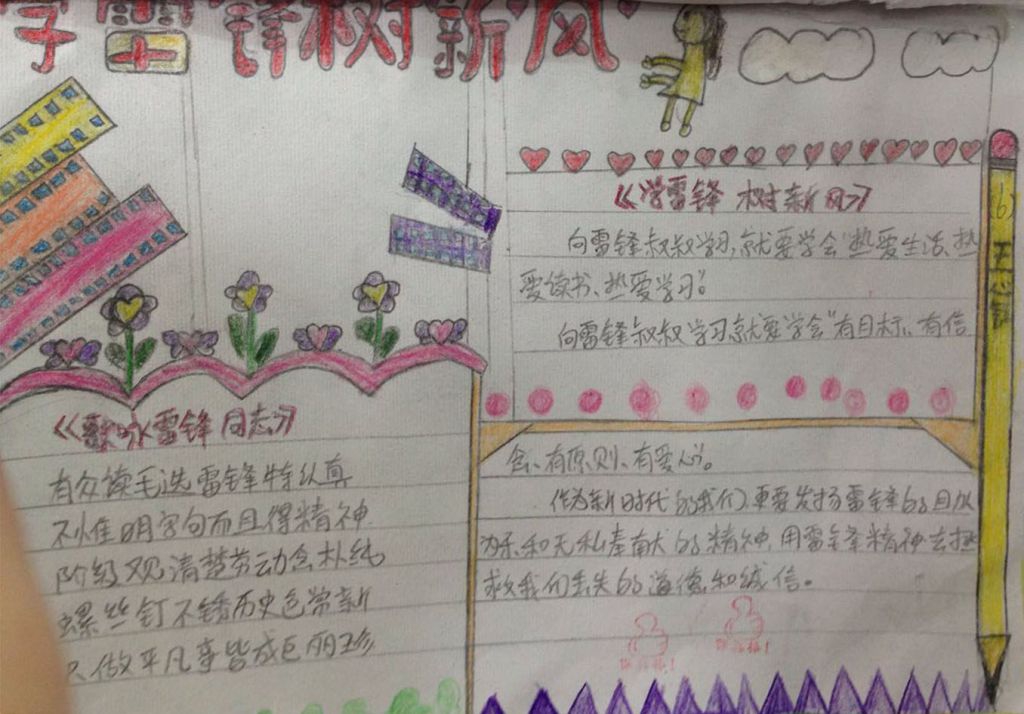 学雷锋树新风
《学雷锋 树新风》
向雷锋叔叔学习,就要学会“热爱生活、热
爱读书、热爱学习”。
向雷锋叔叔学习,就要学会“有目标、有信
念、有原则、有爱心”。
作为新时代的我们,更要发扬雷锋的自以
为乐和无私奉献的精神,用雷锋精神去拯
救我们丢失的道德和诚信。
《歌咏雷锋同志》
有众读毛选雷锋特认真
不惟明字句而且得精神
阶级观清楚劳动念朴纯
螺丝钉不锈历史色常新
只做平凡事皆成巨丽珍